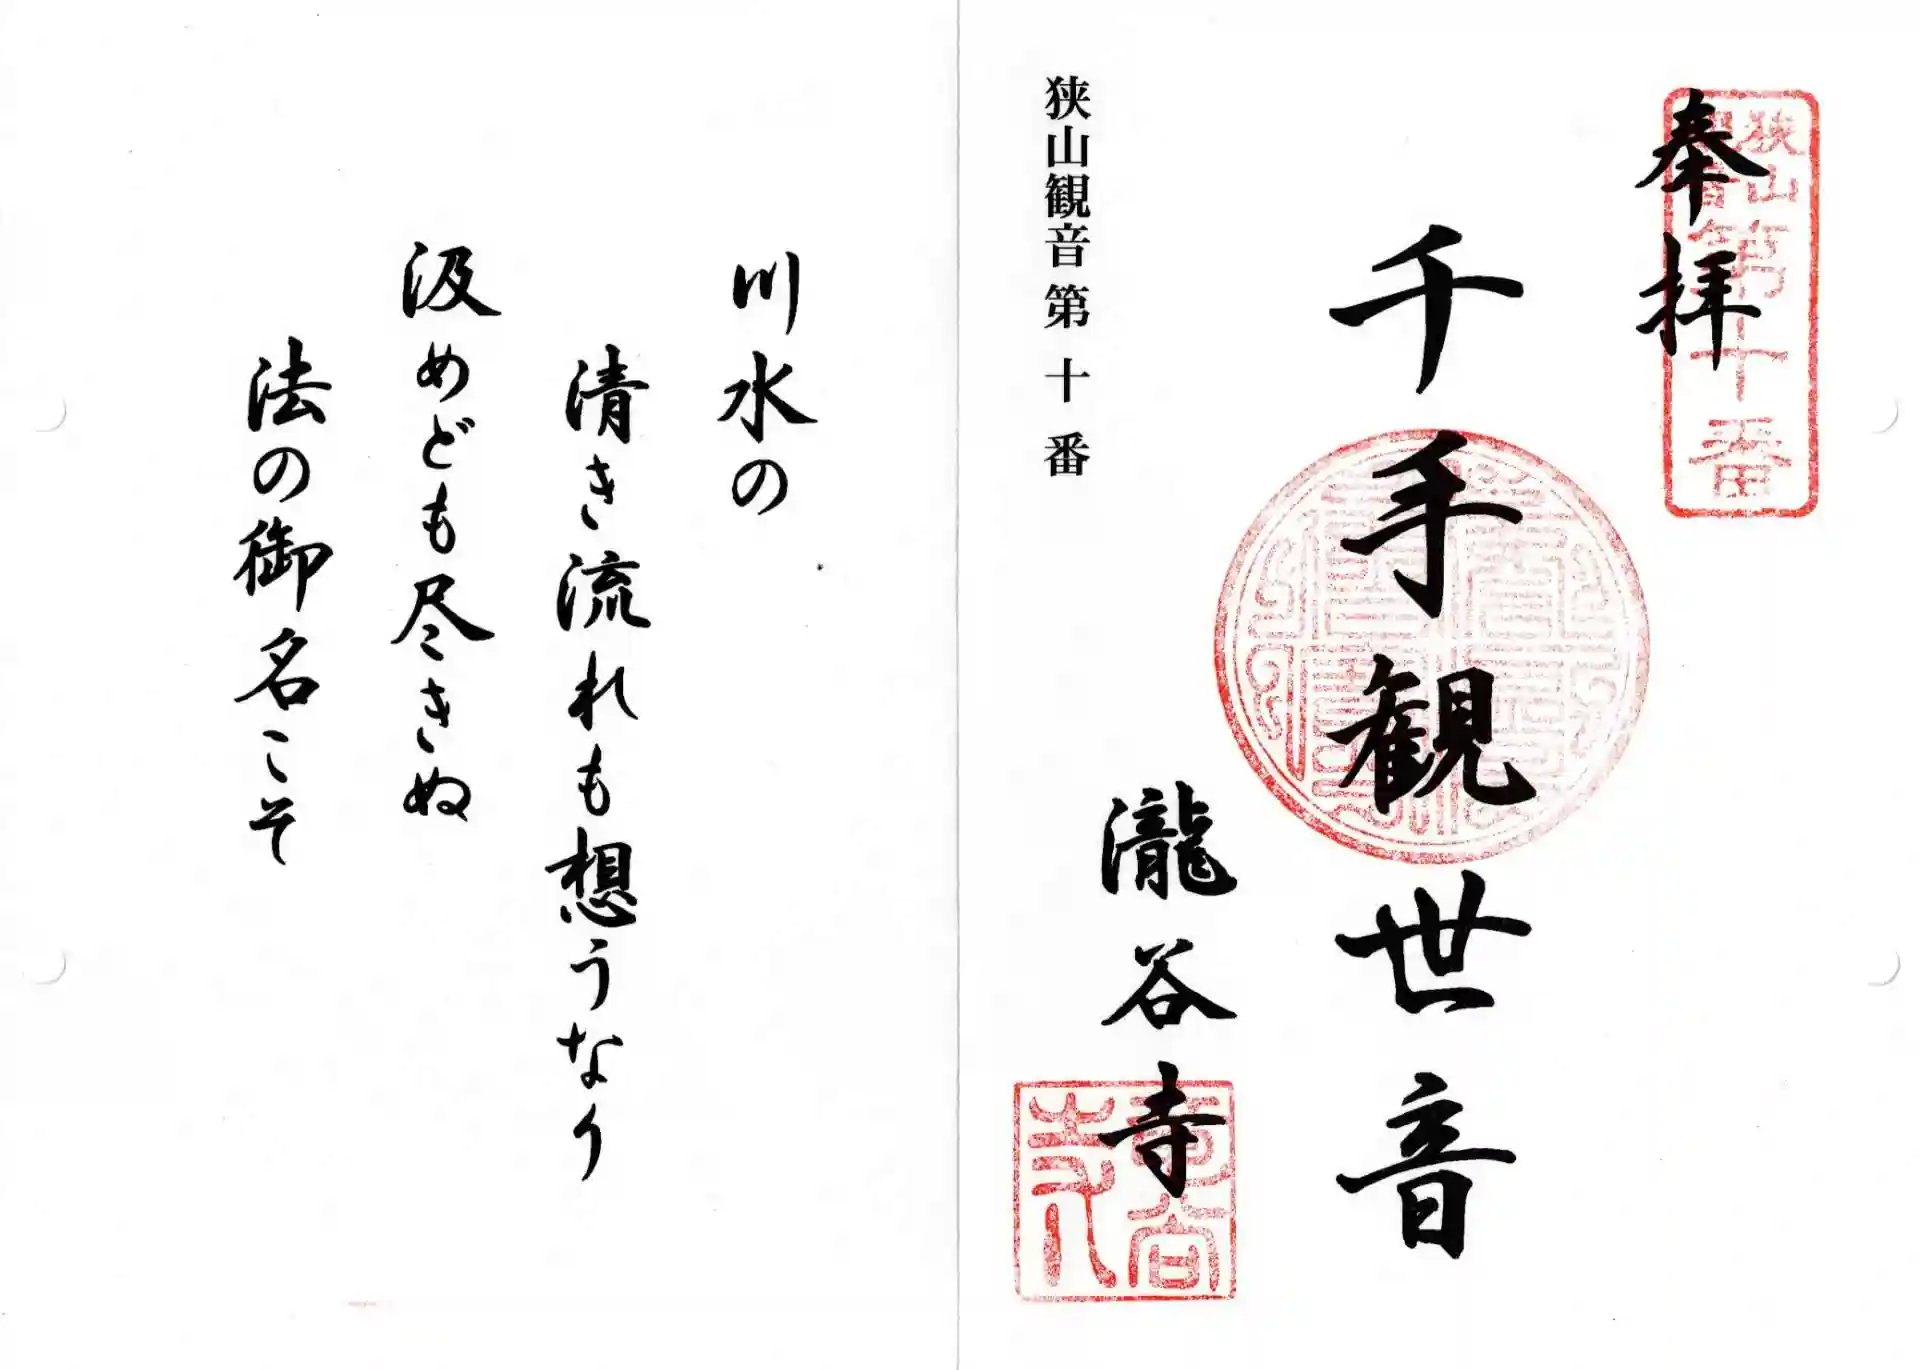 奉拝
狭山
観音
第十番
千手観世音
瀧谷寺
狭山観音第十番
川水の
清き流れも想うなり
汲めども尽きぬ
法の御名こそ